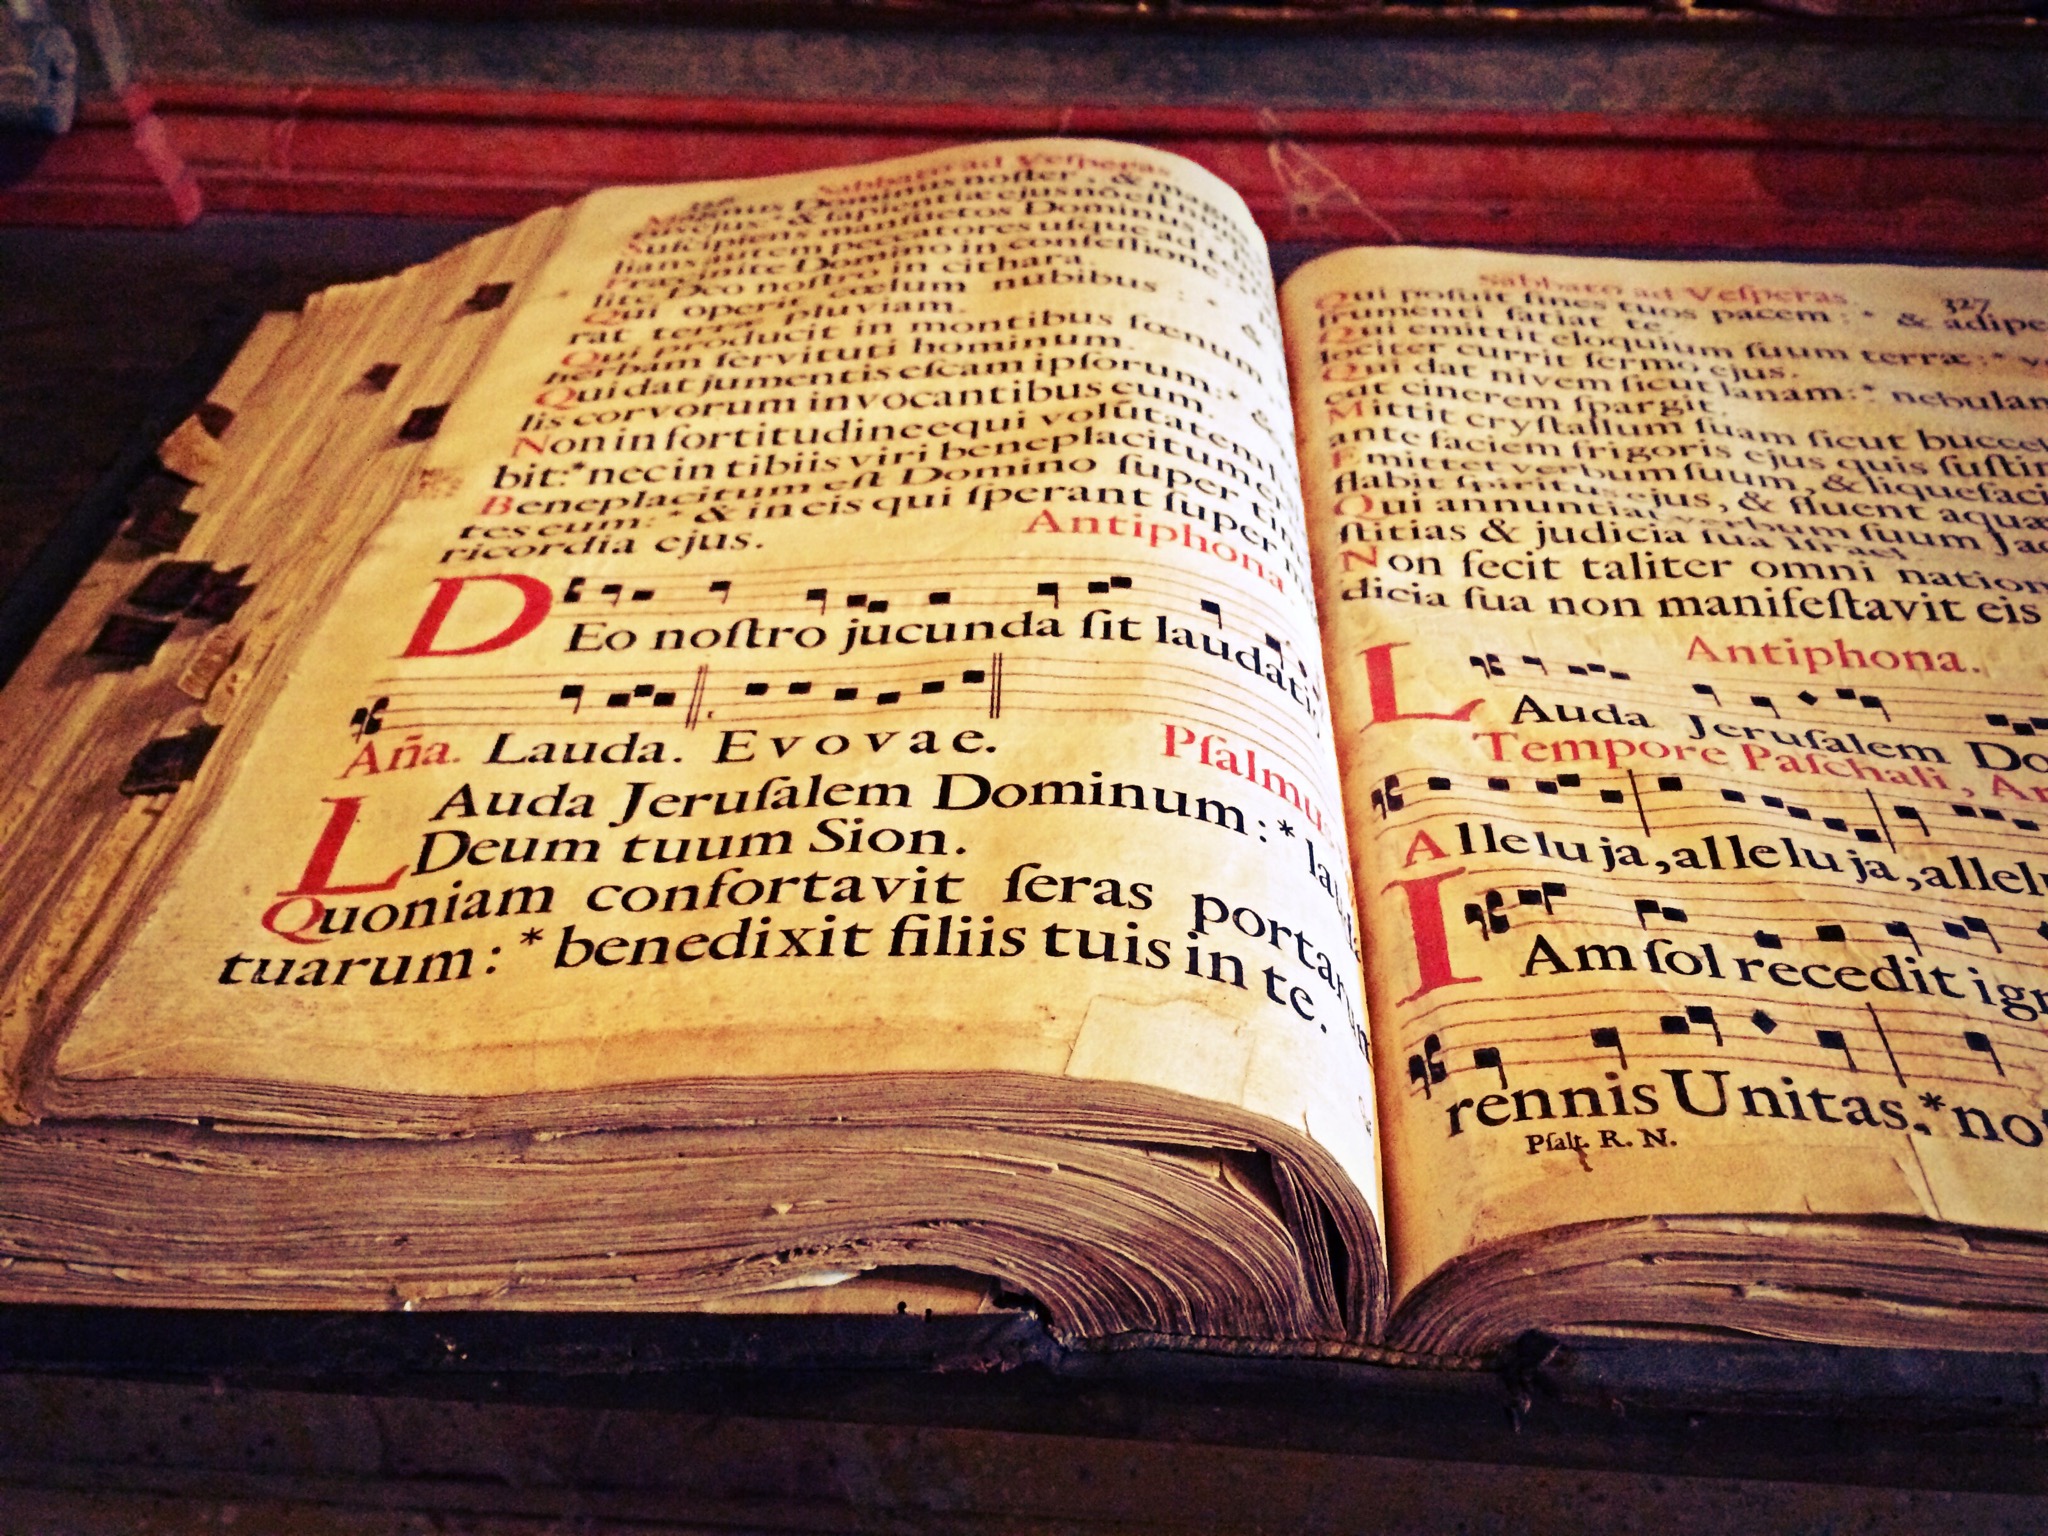 Sabbato ad Vesperas
Magnus Dominus noster : & mag
ejus : * & sapientiæ ejus nō est num
Suscipiens mansuetos Dominus
lians autem peccatores usque ad ter
Præcinite Domino in confessione :
lite Deo nostro in cithara.
Qui operit cœlum nubibus : * &
rat terræ pluviam.
Qui producit in montibus fœnum
herbam servituti hominum.
Qui dat jumentis escam ipsorum : * &
lis corvorum invocantibus eum.
Non in fortitudine equi volūtatem
bit : * nec in tibiis viri beneplacitum er
Beneplacitum est Domino super tim
tes eum : * & in eis qui sperant super m
ricordia ejus.
Antiphona.
DEo nostro jucunda sit laudati
Aña. Lauda. Evovae.
Psalmus
LAuda Jerusalem Dominum : * lauda
Deum tuum Sion.
Quoniam confortavit seras portarum
tuarum : * benedixit filiis tuis in te.
Sabbato ad Vesperas. 327
Qui posuit fines tuos pacem : * & adipe
frumenti satiat te.
Qui emittit eloquium suum terræ : * ve
lociter currit sermo ejus.
Qui dat nivem sicut lanam : * nebulam
cut cinerem spargit.
Mittit crystallum suam sicut buccel
ante faciem frigoris ejus quis sustin
Emittet verbum suum, & liquefaci
flabit spiritus ejus, & fluent aquæ
Qui annuntiat verbum suum Jac
stitias & judicia sua Israel
Non fecit taliter omni nation
dicia sua non manifestavit eis
Antiphona.
LAuda Jerusalem Do
Tempore Paschali, An
Alleluja, alleluja, allelu
IAm sol recedit ign
rennis Unitas, * no
Psalt. R. N.